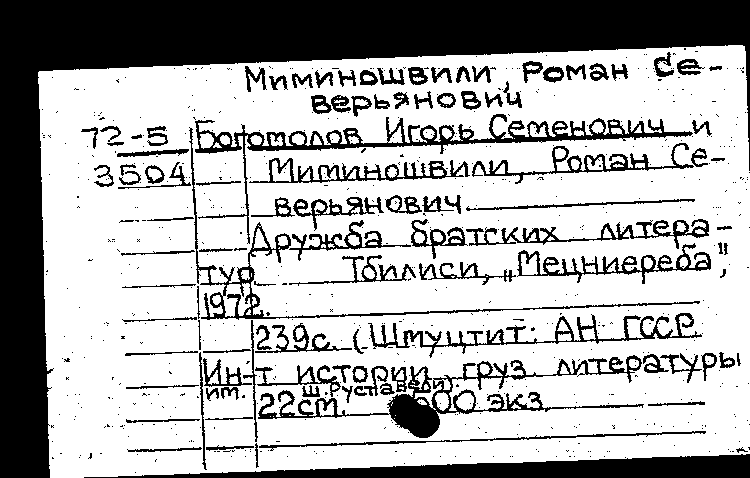 Миминошвили, Роман Се-
верьянович
72-5 Богомолов, Игорь Семенович и
3504 Миминошвили, Роман Се-
верьянович.
Дружба братских литера-
тур. Тбилиси, „Мецниереба",
1972.
239с. (Шмуцтит: АН ГССР.
Ин-т истории груз. литературы
им. Ш. Руставели).
22см. 00 экз.